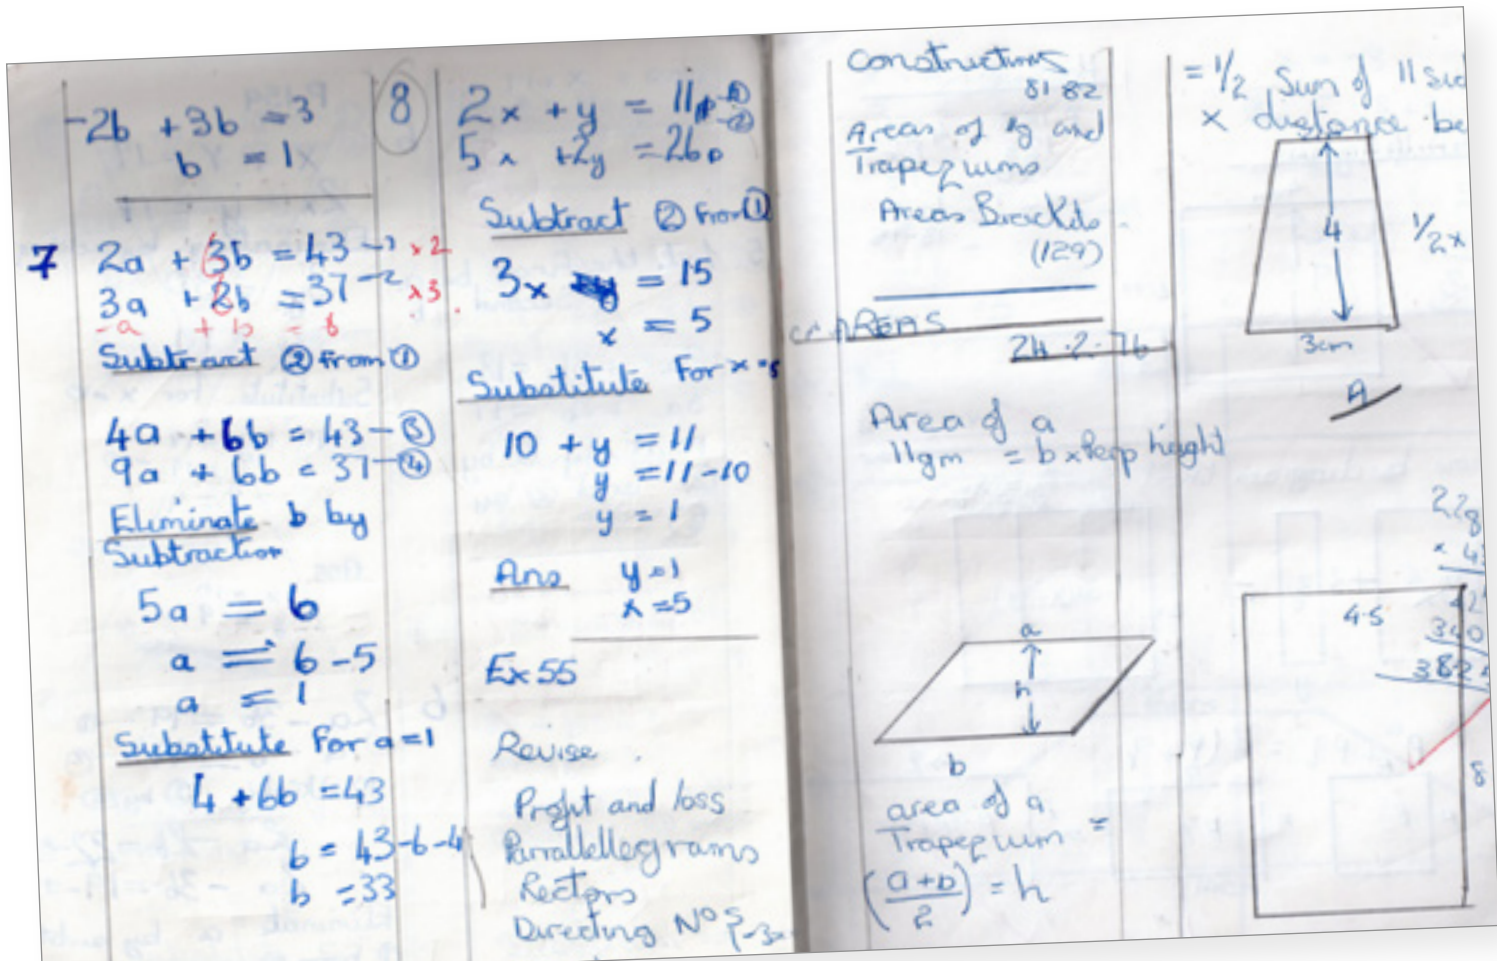 -2b + 3b = 3
b = 1
7
2a + 3b = 43 - 1 ×2
3a + 2b = 37 - 2 ×3
-a + b = 6
Subtract ② from ①
4a + 6b = 43 - ③
9a + 6b = 37 - ④
Eliminate b by
Subtraction
5a = 6
a = 6 - 5
a = 1
Substitute For a = 1
4 + 6b = 43
b = 43 - 6 - 4
b = 33
8
2x + y = 11
5x + 2y = 26
Subtract ② From ①
3x = 15
x = 5
Substitute For x = 5
10 + y = 11
y = 11 - 10
y = 1
Ans y = 1
x = 5
Ex 55
Revise
Profit and loss
Parrallellegrams
Rectors
Directing Nos
Constructions
81 82
Areas of and
Trapeziums
Areas
(129)
AREAS
24.2.76
Area of a
11gm = b x Perp height
a
h
b
area of a
Trapezium =
(a + b / 2) = h
= 1/2 Sum of 11
x distance be
4
1/2 x
3cm
A
4.5
8